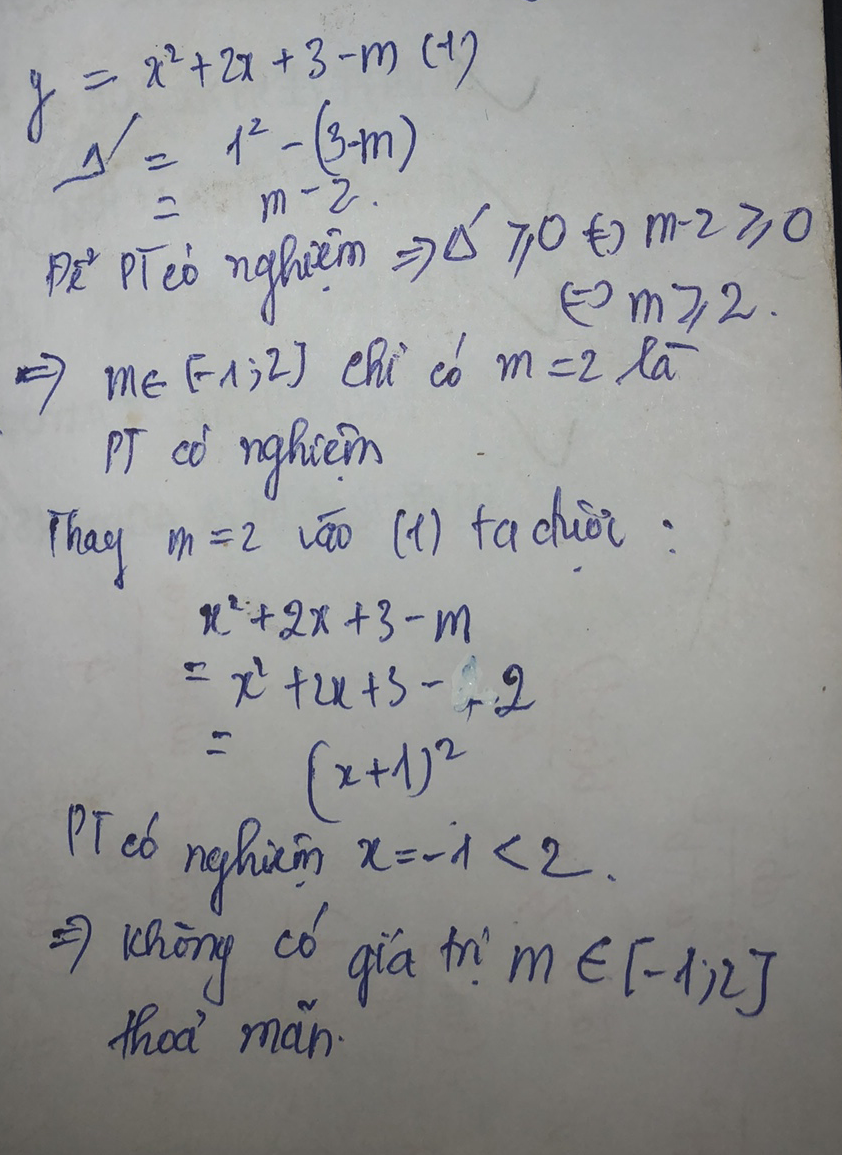 y = x² + 2x + 3 - m (1)
Δ' = 1² - (3-m)
= m - 2.
Để PT có nghiệm => Δ' ⩾ 0 <=> m-2 ⩾ 0
<=> m ⩾ 2.
=> m ∈ [-1;2] chỉ có m = 2 là
PT có nghiệm
Thay m = 2 vào (1) ta được :
x² + 2x + 3 - m
= x² + 2x + 3 - 2
= (x+1)²
PT có nghiệm x = -1 < 2.
=> không có giá trị m ∈ [-1;2]
thoả mãn.